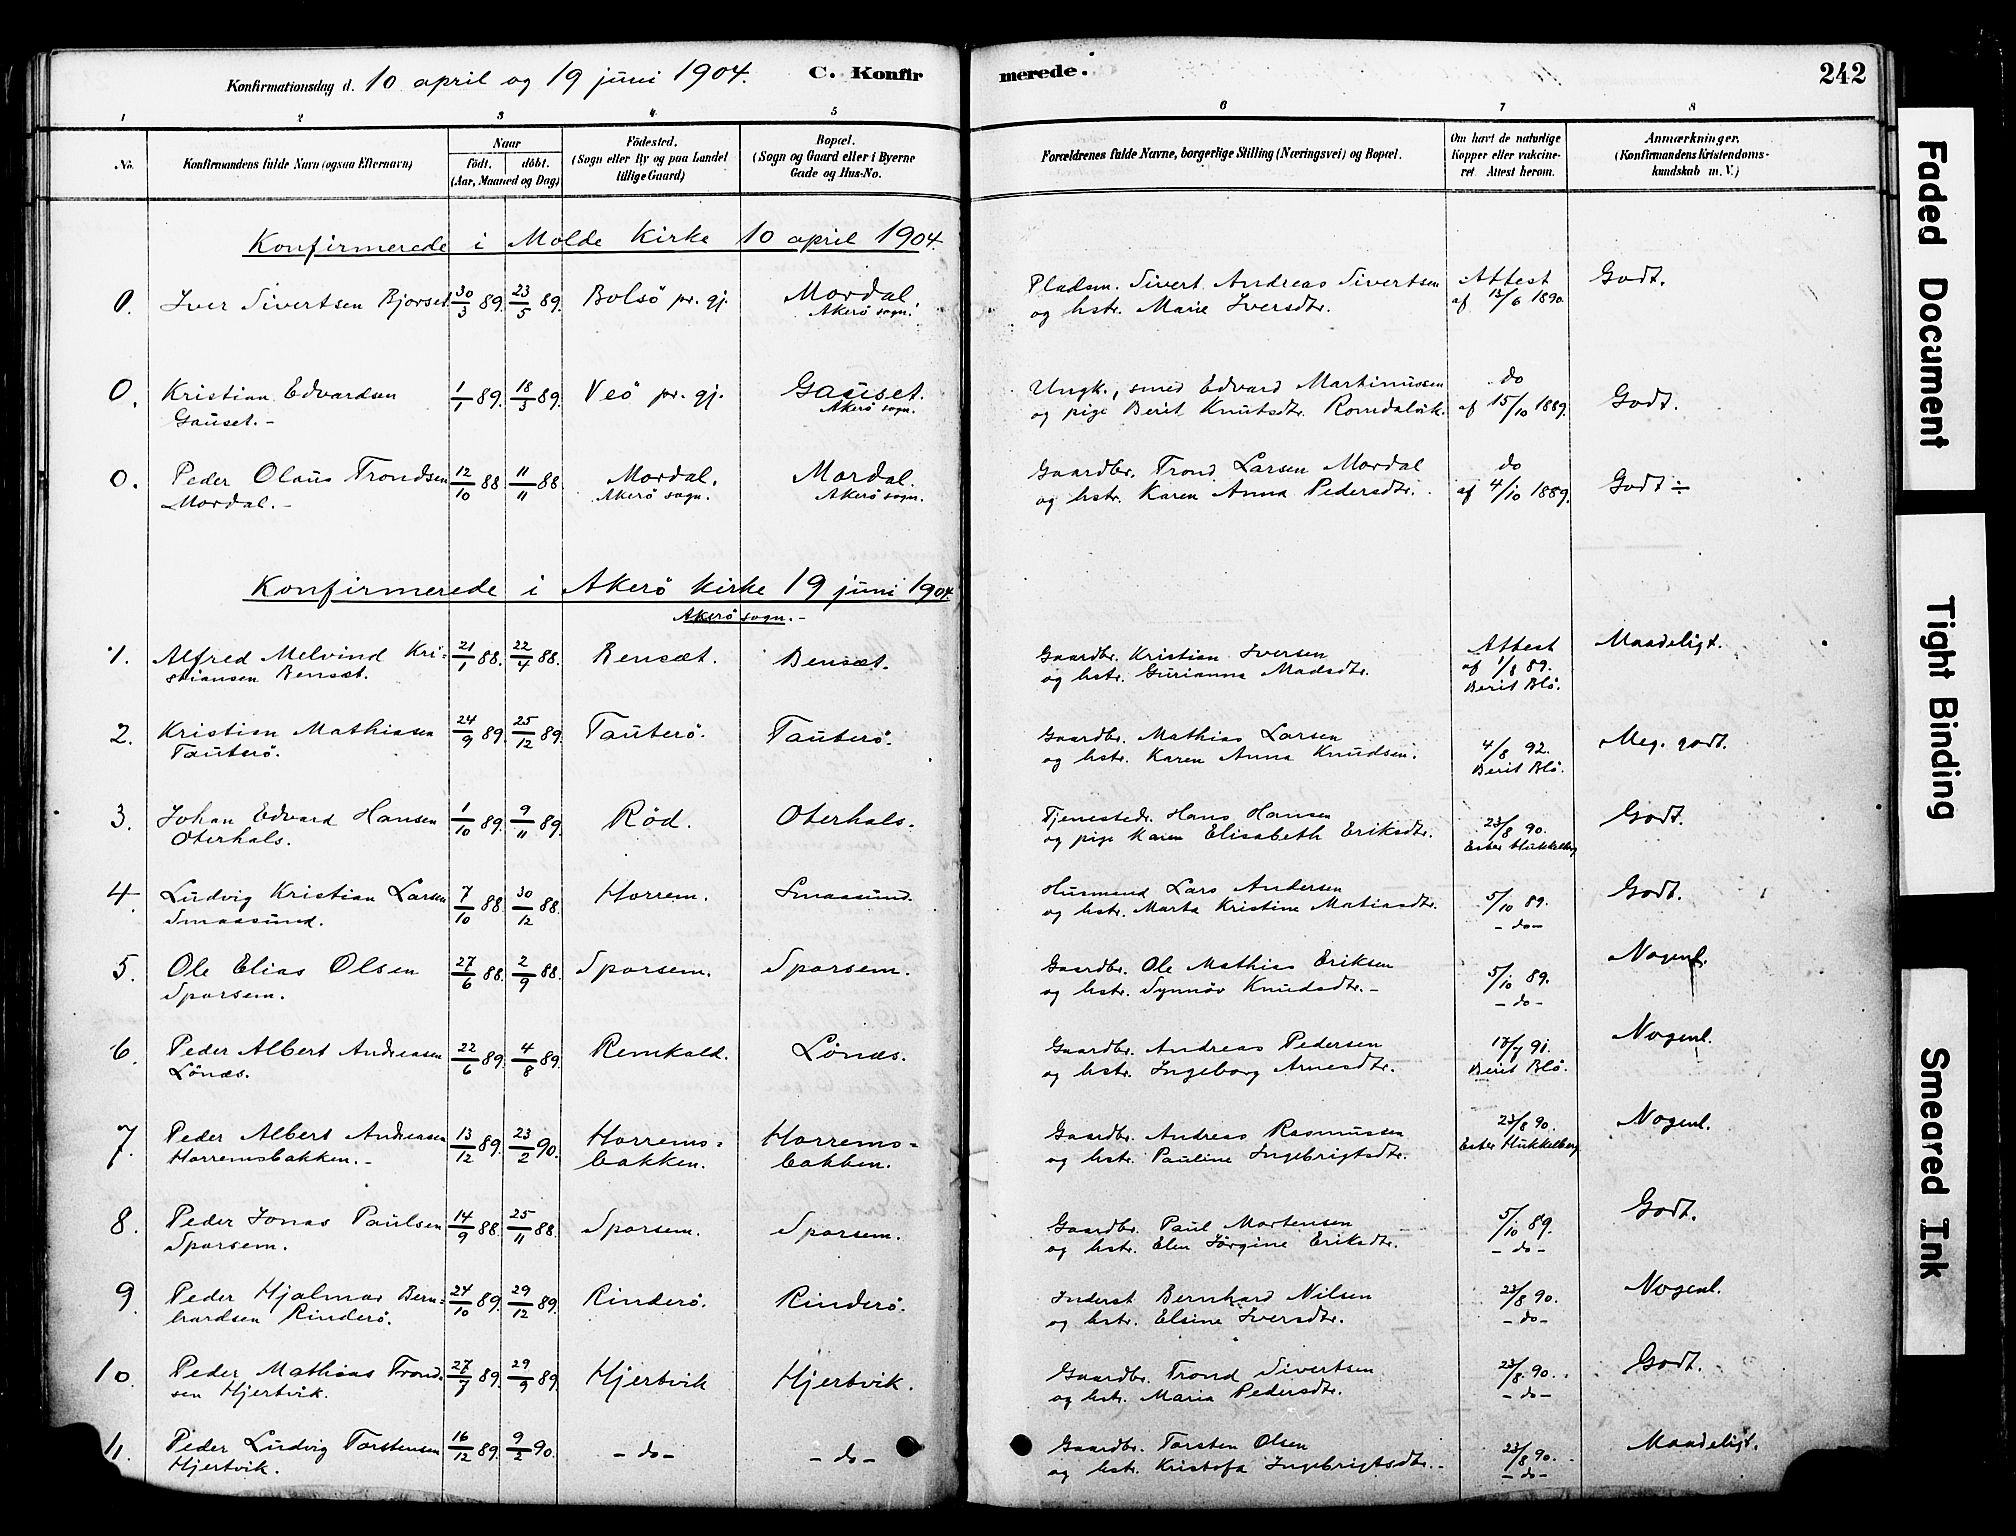 Konfirmationsdag d. 10 april og 19 juni 1904. C. Konfirmerede. 242
1 2 3 4 5 6 7 8
No. Konfirmandens fulde Navn (ogsaa Efternavn) Naar født. døbt. (Aar, Maaned og Dag) Fødested. (Sogn eller By og paa Landet tillige Gaard) Bopæl. (Sogn og Gaard eller i Byerne Gade og Hus-No. Forældrenes fulde Navne, borgerlige Stilling (Næringsvei) og Bopæl. Om havt de naturlige Kopper eller vakcineret Attest herom. Anmærkninger. (Konfirmandens Kristendomskundskab m. V.)
Konfirmerede i Molde Kirke 10 april 1904.
0. Iver Sivertsen Bjorset 30/3 89. 23/5 89. Bolsö pr. gj. Mordal. Akerö sogn. Pladsm. Sivert Andreas Sivertsen Attest Godt.
og hstr. Marie Iversdtr. af 13/6 1890.
0. Kristian Edvardsen 1/1 89. 18/3 89. Veö pr. gj. Gauset. Akerö sogn. Ungk., smed Edvard Martinussen do Godt.
Gauset.- og pige Berit Knutsdtr. Romdalsvik. af 15/10 1889.
0. Peder Olaus Trondsen 12/10 88 11/11 88 Mordal. Akerö sogn. Mordal. Akerö sogn. Gaardbr. Trond Larsen Mordal do Godt ÷
Mordal.- og hstr. Karen Anna Pedersdtr. af 4/10 1889.
Konfirmerede i Akerö Kirke 19 juni 1904.
Akerö sogn.-
1. Alfred Melvind Kri- 21/1 88. 22/4 88. Bensæt. Bensæt. Gaardbr. Kristian Iversen Attest Maadeligt.
stiansen Bensæt. og hstr. Gurianna Madsdtr. af 1/8 89. Berit Blö.
2. Kristian Mathiasen 24/9 89 25/12 89. Tauterö. Tauterö. Gaardbr. Mathias Larsen 4/8 92. Meg. godt.
Tauterö. og hstr. Karen Anna Knudsen. Berit Blö.
3. Johan Edvard Hansen 1/10 89. 9/11 89. Röd. Oterhals. Tjenestedr. Hans Hansen 23/8 90. Godt.
Oterhals. og pige Karen Elisabeth Eriksdtr. Ester Hukkelberg
4. Ludvig Kristian Larsen 7/10 88. 30/12 88. Horrem. Smaasund. Husmand Lars Andersen 5/10 89. Godt.
Smaasund. og hstr. Marta Kristine Matiasdtr. - do -
5. Ole Elias Olsen 27/6 88. 2/9 88. Sporsem. Sporsem. Gaardbr. Ole Mathias Eriksen 5/10 89. Nogenl.
Sporsem. og hstr. Synnöv Knudsdtr.- - do -
6. Peder Albert Andreasen 22/6 89. 4/8 89. Remkald. Lönæs. Gaardbr. Andreas Pedersen 91. Nogenl.
Lönæs. og hstr. Ingeborg Arnesdtr. Berit Blö.
7. Peder Albert Andreasen 13/12 89. 23/2 90. Horrems- Horrems- Gaardbr. Andreas Rasmussen 23/8 90. Nogenl.
Horremsbakken.- bakken. bakken. og hstr. Pauline Ingebrigtsdtr. Ester Hukkelberg
8. Peder Jonas Paulsen 14/9 88 25/11 88. Sporsem. Sporsem. Gaardbr. Paul Mortensen 5/10 89. Godt.
Sporsem. og hstr. Elen Jörgine Eriksdtr. - do -
9. Peder Hjalmar Bern- 24/10 89. 29/12 89. Rinderö. Rinderö. Inderst Bernhard Nilsen 23/8 90. Nogenl.
hardsen Rinderö. og hstr. Elsine Iversdtr. - do -
10. Peder Mathias Trond- 27/7 89. 29/9 89. Hjertvik Hjertvik. Gaardbr. Trond Sivertsen 23/8 90. Godt.
sen Hjertvik. og hstr. Maria Pedersdtr. - do -
11. Peder Ludvig Torstensen 16/12 89. 9/2 90. - do - - do - Gaardbr. Torsten Olsen 23/8 90. Maadeligt.
Hjertvik. og hstr. Kristofa Ingebrigtsdtr.- - do -
Faded Document
Tight Binding
Smeared Ink